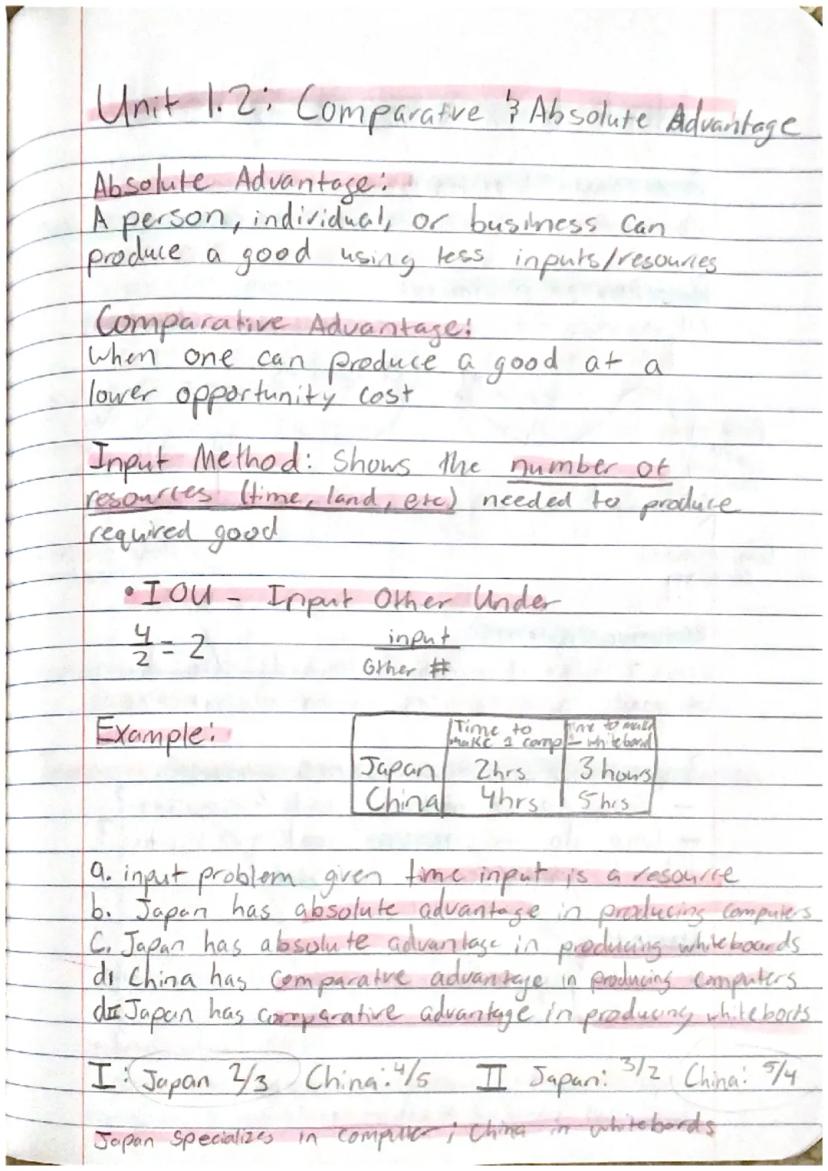 Unit 1.2: Comparative & Absolute Advantage
Absolute Advantage:
A person, individual, or business can
produce a good using less inputs/resources
Comparative Advantage:
When one can produce a good at a
lower opportunity cost
Input Method: Shows the number of
resources (time, land, etc) needed to produce
required good
• IOU - Input Other Under
4/2 = 2 input/Other #
Example:
Time to make 1 comp Time to make 1 whiteboard
Japan 2hrs 3 hours
China 4hrs 5hrs
a. input problem given time input is a resource
b. Japan has absolute advantage in producing computers
C. Japan has absolute advantage in producing whiteboards
dI China has comparative advantage in producing computers
dII Japan has comparative advantage in producing whitebords
I: Japan 2/3 China: 4/5 II Japan: 3/2 China: 5/4
Japan specializes in computer; China in whitebords